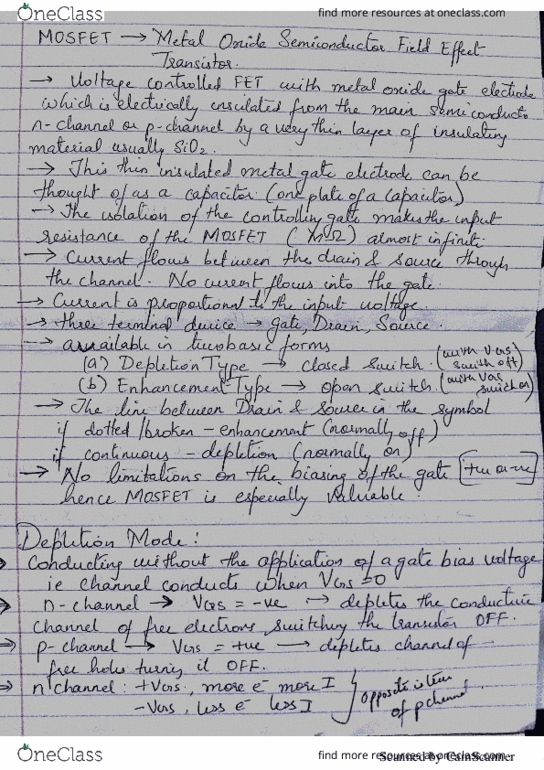 OneClass
find more resources at oneclass.com
MOSFET → Metal Oxide Semiconductor Field Effect
Transistor.
→ Voltage controlled FET with metal oxide gate electrode
which is electrically insulated from the main semiconducto
n-channel or p-channel by a very thin layer of insulating
material usually SiO2.
→ This thin insulated metal gate electrode can be
thought of as a capacitor (one plate of a capacitor)
→ The isolation of the controlling gate makes the input
resistance of the MOSFET (MΩ) almost infinite.
→ Current flows between the drain & source through
the channel. No current flows into the gate.
→ Current is proportional to the input voltage.
→ three terminal device → gate, Drain, Source.
→ available in two basic forms
(a) Depletion Type → closed switch. (with VGS switch off)
(b) Enhancement Type → open switch. (with VGS switch on)
→ The line between Drain & Source in the symbol
if dotted/broken - enhancement (normally off)
if continuous - depletion (normally on)
→ No limitations on the biasing of the gate [+ve or -ve]
hence MOSFET is especially valuable.
Depletion Mode:
→ Conducting without the application of a gate bias voltage
ie channel conducts when VGS = 0
→ n-channel → VGS = -ve → depletes the conductive
channel of free electrons, switching the transistor OFF.
→ p-channel → VGS = +ve → depletes channel of
free holes turning it OFF.
→ n channel : +VGS, more e- more I
-VGS, less e- less I
Opposite is true
of p channel.
OneClass
find more resources at oneclass.com
Scanned by CamScanner